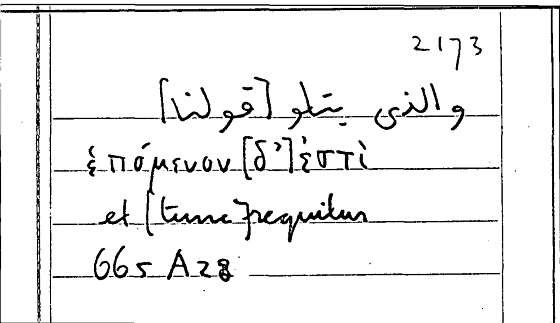 2173
والذى يتلو [قولنا]
ἑπόμενον [δ’] ἐστὶ
et [tunc] sequitur
665 A28